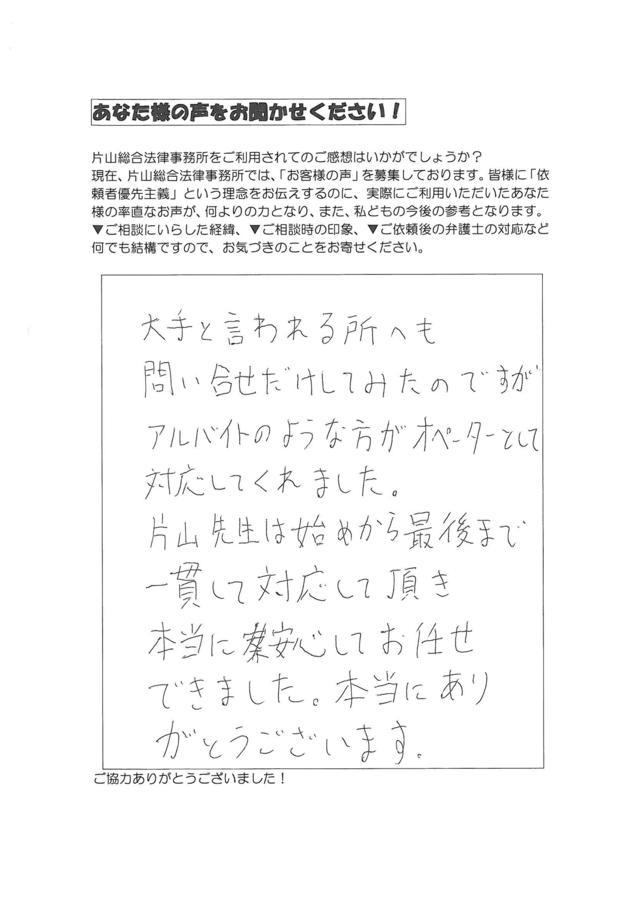 あなた様の声をお聞かせください！
片山総合法律事務所をご利用されてのご感想はいかがでしょうか？
現在、片山総合法律事務所では、「お客様の声」を募集しております。皆様に「依
頼者優先主義」という理念をお伝えするのに、実際にご利用いただいたあなた
様の率直なお声が、何よりの力となり、また、私どもの今後の参考となります。
▼ご相談にいらした経緯、▼ご相談時の印象、▼ご依頼後の弁護士の対応など
何でも結構ですので、お気づきのことをお寄せください。
大手と言われる所へも
問い合せだけしてみたのですが
アルバイトのような方がオペーターとして
対応してくれました。
片山先生は始めから最後まで
一貫して対応して頂き
本当に安心してお任せ
できました。本当にあり
がとうございます。
ご協力ありがとうございました！